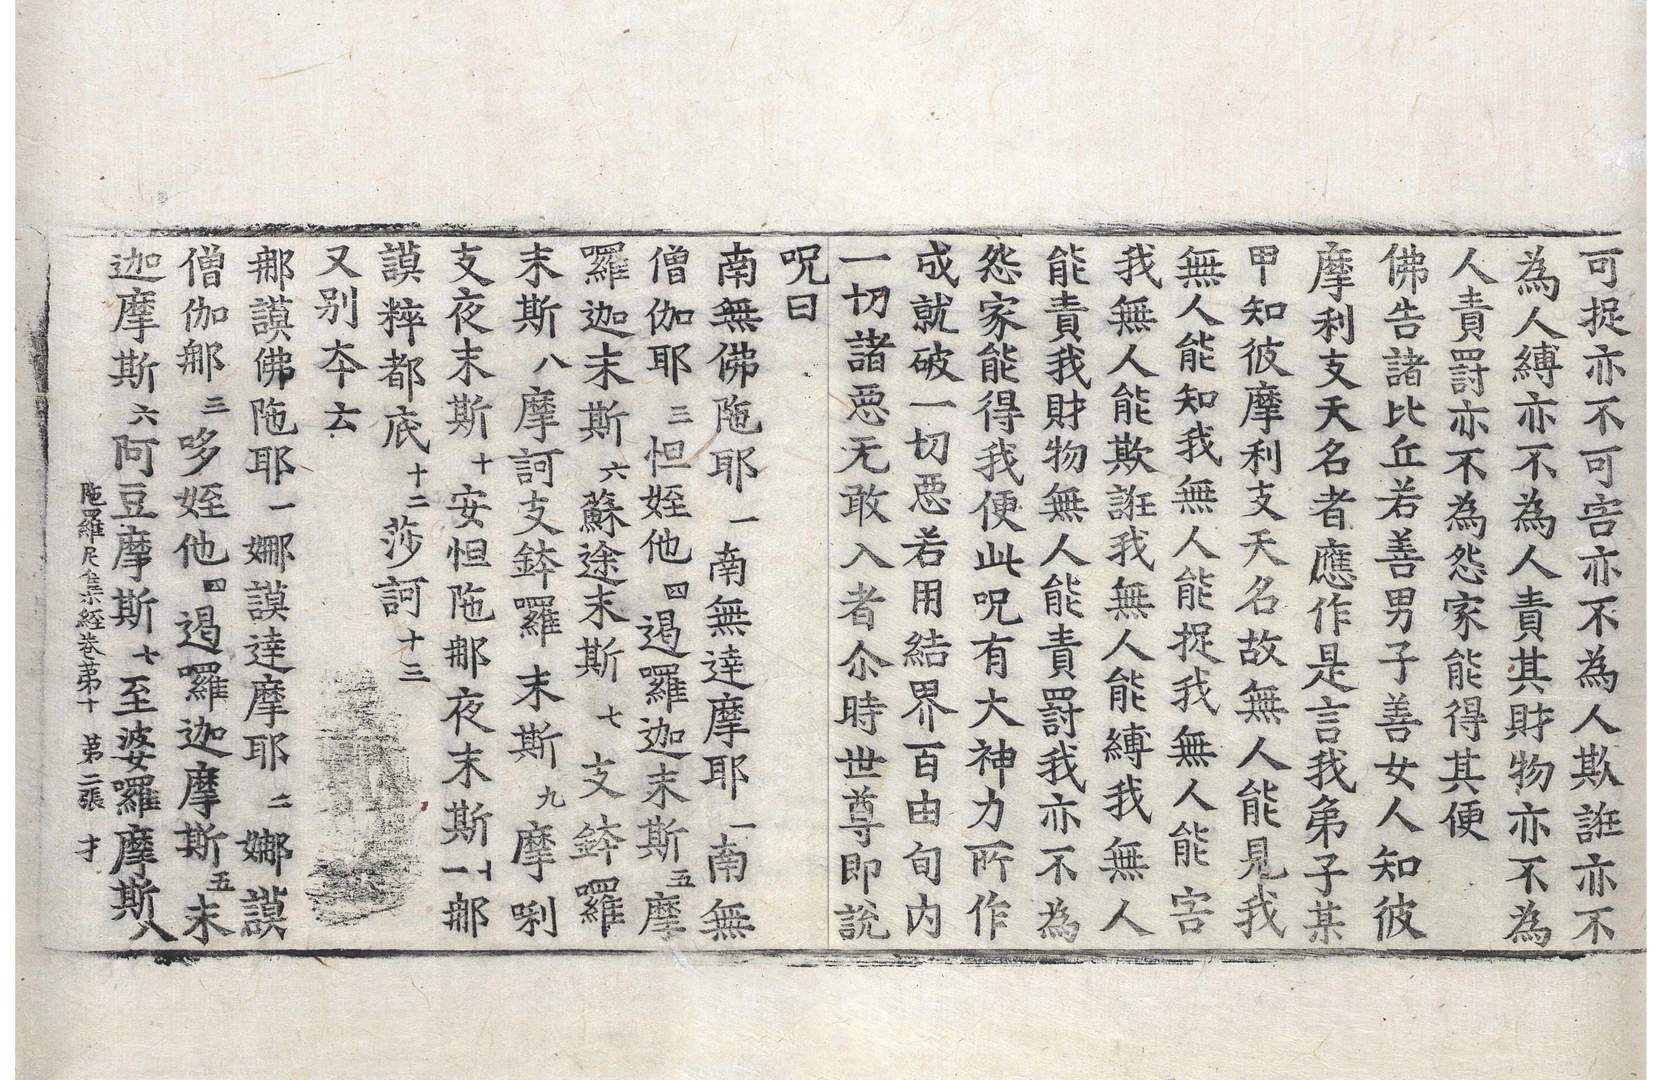 可捉亦不可害亦不為人欺誑亦不
為人縛亦不為人責其財物亦不為
人責罰亦不為怨家能得其便
佛告諸比丘若善男子善女人知彼
摩利支天名者應作是言我弟子某
甲知彼摩利支天名故無人能見我
無人能知我無人能捉我無人能害
我無人能欺誑我無人能縛我無人
能責我財物無人能責罰我亦不為
怨家能得我便此呪有大神力所作
成就破一切惡若用結界百由旬內
一切諸惡无敢入者尒時世尊即說
呪曰
南無佛陁耶一南無達摩耶一南無
僧伽耶三怛姪他四遏囉迦末斯五摩
囉迦末斯六蘇途末斯七支鉢囉
末斯八摩訶支鉢囉末斯九摩唎
支夜末斯十安怛陁那夜末斯十一那
謨粹都底十二莎訶十三
又别夲云
那謨佛陁耶一娜謨達摩耶二娜謨
僧伽那三哆姪他四遏囉迦摩斯五末
迦摩斯六阿豆摩斯七至波囉摩斯八
陁羅尼集経卷苐十 苐二張 才